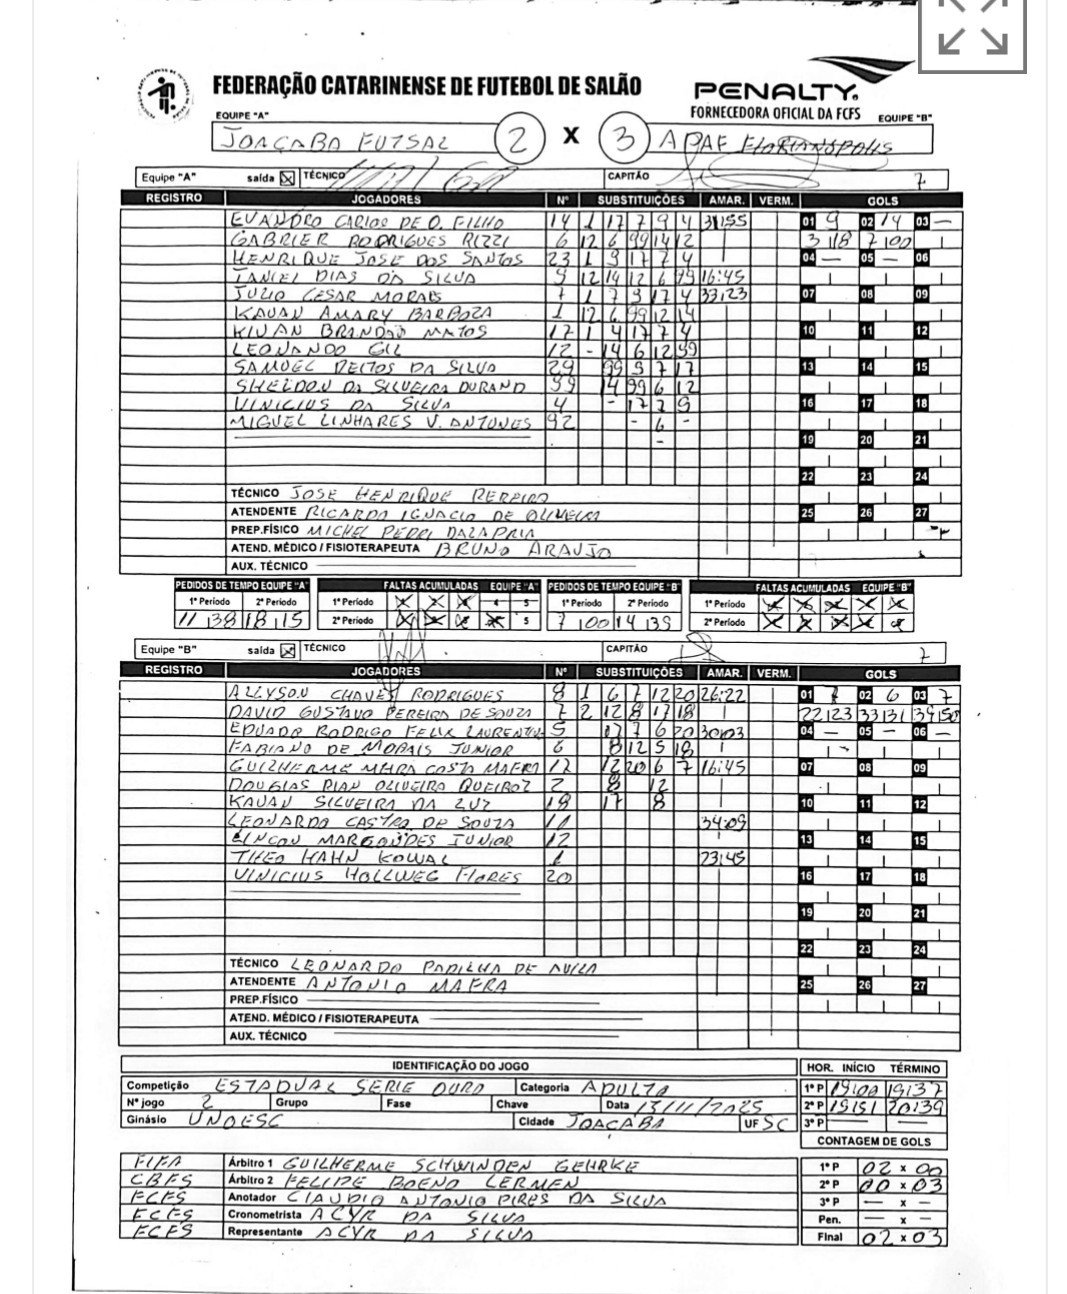 FEDERAÇÃO CATARINENSE DE FUTEBOL DE SALÃO
PENALTY
FORNECEDORA OFICIAL DA FCFS
EQUIPE "A" EQUIPE "B"
JOAÇABA FUTSAL 2 X 3 APAF FLORIANÓPOLIS
Equipe "A" saída X TÉCNICO CAPITÃO 7
REGISTRO JOGADORES Nº SUBSTITUIÇÕES AMAR. VERM. GOLS
EVANDRO CARLOS DE O. FILHO 14 1 17 7 9 4 31:55 01 9 02 14 03 —
GABRIER RODRIGUES RIZZI 6 12 6 99 14 12 3 18 7 00
HENRIQUE JOSE DOS SANTOS 23 1 9 17 7 4 04 — 05 — 06
DIAS DA SILVA 9 12 14 12 6 99 16:45
JULIO CESAR MORAES 7 1 7 9 17 4 33:23 07 08 09
KAUAN AMARY BARBOZA 1 12 6 99 12 14
BRANDÃO MATOS 17 1 4 17 7 4 10 11 12
LEONANDO GIL 12 - 14 6 12 99
SAMUEL DA SILVA 29 99 9 7 17 13 14 15
SHELDON DA SILVEIRA DURAND 99 14 99 6 12
VINICIUS DA SILVA 4 - 17 7 9 16 17 18
MIGUEL LINHARES V. ANTUNES 92 - 6 -
19 20 21
22 23 24
TÉCNICO JOSE HENRIQUE PEREIRA
ATENDENTE RICARDO IGNACIO DE OLIVEIRA 25 26 27
PREP.FÍSICO MICHEL PEDRI DALAPRIA
ATEND. MÉDICO / FISIOTERAPEUTA BRUNO ARAUJO
AUX. TÉCNICO
PEDIDOS DE TEMPO EQUIPE "A" FALTAS ACUMULADAS EQUIPE "A" PEDIDOS DE TEMPO EQUIPE "B" FALTAS ACUMULADAS EQUIPE "B"
1º Período 2º Período 1º Período 4 5 1º Período 2º Período 1º Período
11 38 18 15 2º Período 5 7 00 14 39 2º Período
Equipe "B" saída X TÉCNICO CAPITÃO 7
REGISTRO JOGADORES Nº SUBSTITUIÇÕES AMAR. VERM. GOLS
ALLYSON CHAVES RODRIGUES 8 1 6 7 12 20 26:22 01 7 02 6 03 7
DAVID GUSTAVO PEREIRA DE SOUZA 7 2 12 8 17 18 22 23 33 31 39 50
EDUARDO RODRIGO FELIX 5 17 7 6 20 30:03 04 — 05 — 06 —
FABIANO DE MORAIS JUNIOR 6 8 12 5 18
GUILHERME MAIRA COSTA MAFRA 17 12 20 6 7 16:45 07 08 09
DOUGLAS RIAN OLIVEIRA QUEIROZ 2 8 12
KAUAN SILVEIRA DA LUZ 18 17 8 10 11 12
LEONARDO CASTRO DE SOUZA 11 34:09
LINCON MARGONDES JUNIOR 12 13 14 15
THEO HAHN KOWAL 1 23:45
VINICIUS HOLLWEG FLORES 20 16 17 18
19 20 21
22 23 24
TÉCNICO LEONARDO PADILHA DE AVILA
ATENDENTE ANTONIO MAFRA 25 26 27
PREP.FÍSICO
ATEND. MÉDICO / FISIOTERAPEUTA
AUX. TÉCNICO
IDENTIFICAÇÃO DO JOGO HOR. INÍCIO TÉRMINO
Competição ESTADUAL SERIE OURO Categoria ADULTA 1º P 19:00 19:37
Nº jogo 2 Grupo Fase Chave Data 13/11/2025 2º P 19:51 20:39
Ginásio UNOESC Cidade JOAÇABA UF SC 3º P — —
CONTAGEM DE GOLS
FIFA Árbitro 1 GUILHERME SCHWINDEN GEHRKE 1º P 02 x 00
CBFS Árbitro 2 FELIPE BOENO LERMEN 2º P 00 x 03
FCFS Anotador CLAUDIO ANTONIO PIRES DA SILVA 3º P — x —
FCFS Cronometrista ACYR DA SILVA Pen. — x —
FCFS Representante ACYR DA SILVA Final 02 x 03